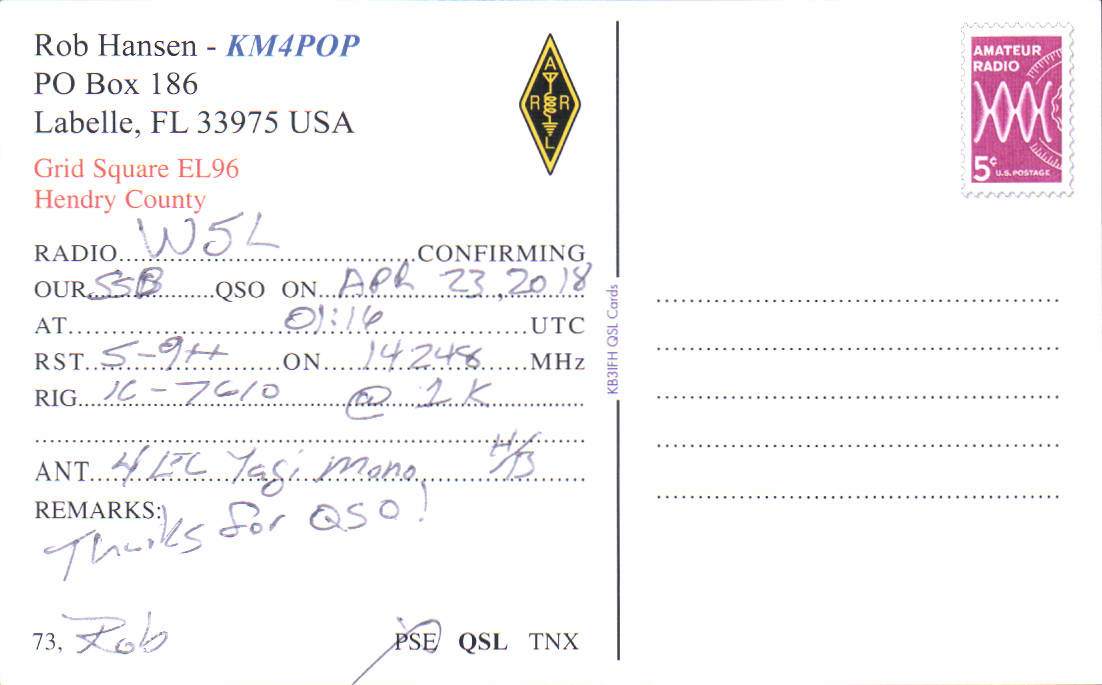 Rob Hansen - KM4POP
PO Box 186
Labelle, FL 33975 USA
Grid Square EL96
Hendry County
A
R R
L
RADIO W5L CONFIRMING
OUR SSB QSO ON APR 23, 2018
AT 01:16 UTC
RST 5-9++ ON 14248 MHz
RIG IC-7610 @ 1K
ANT. 4 LEC Yagi Mono. H/B
REMARKS:
Thanks for QSO!
73, Rob PSE QSL TNX
KB3IFH QSL Cards
AMATEUR
RADIO
5¢ U.S. POSTAGE